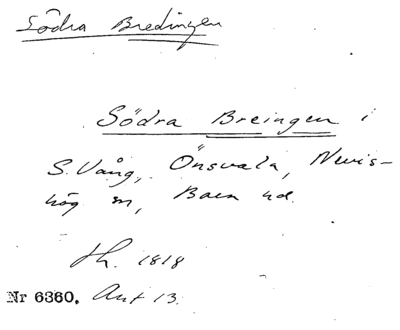 Södra Bredingen
Södra Breingen i
S. Vång, Önsvala, Nevis-
hög m, Bara hd.
Th. 1818
Nr 6360. Ant 13.